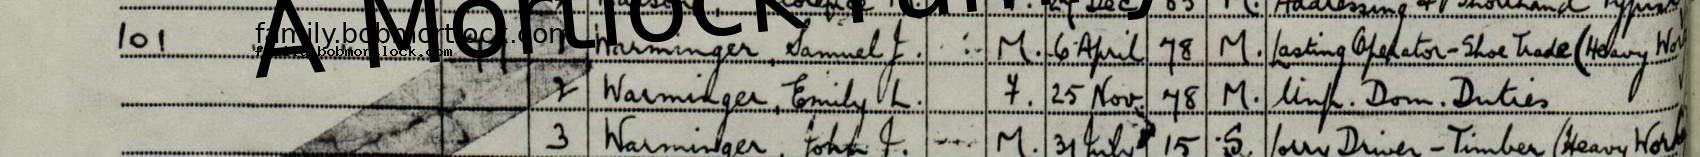 A Mortlock Family
family.bobmortlock.com
family.bobmortlock.com
24 Dec 03 M. Addressing & Shorthand Typist
101 1 Warminger, Samuel J. M. 6 April 78 M. Lasting Operator - Shoe Trade (Heavy Work
2 Warminger, Emily L. F. 25 Nov. 78 M. Unp. Dom. Duties
3 Warminger, John J. M. 31 July 15 S. Lorry Driver - Timber (Heavy Work